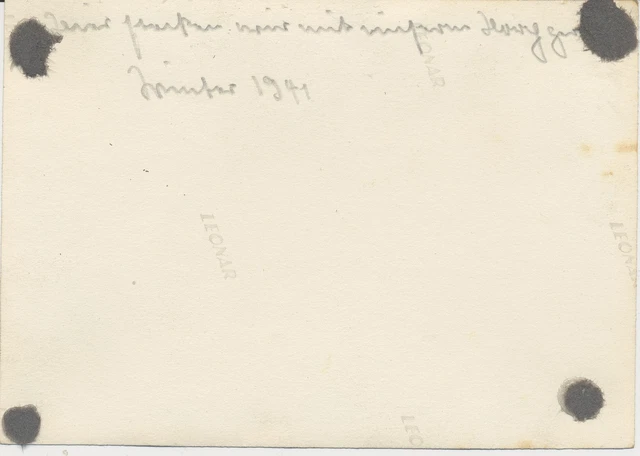 Hier parken wir mit unserm
Winter 1941
LEONAR
LEONAR
LEONAR
LEO